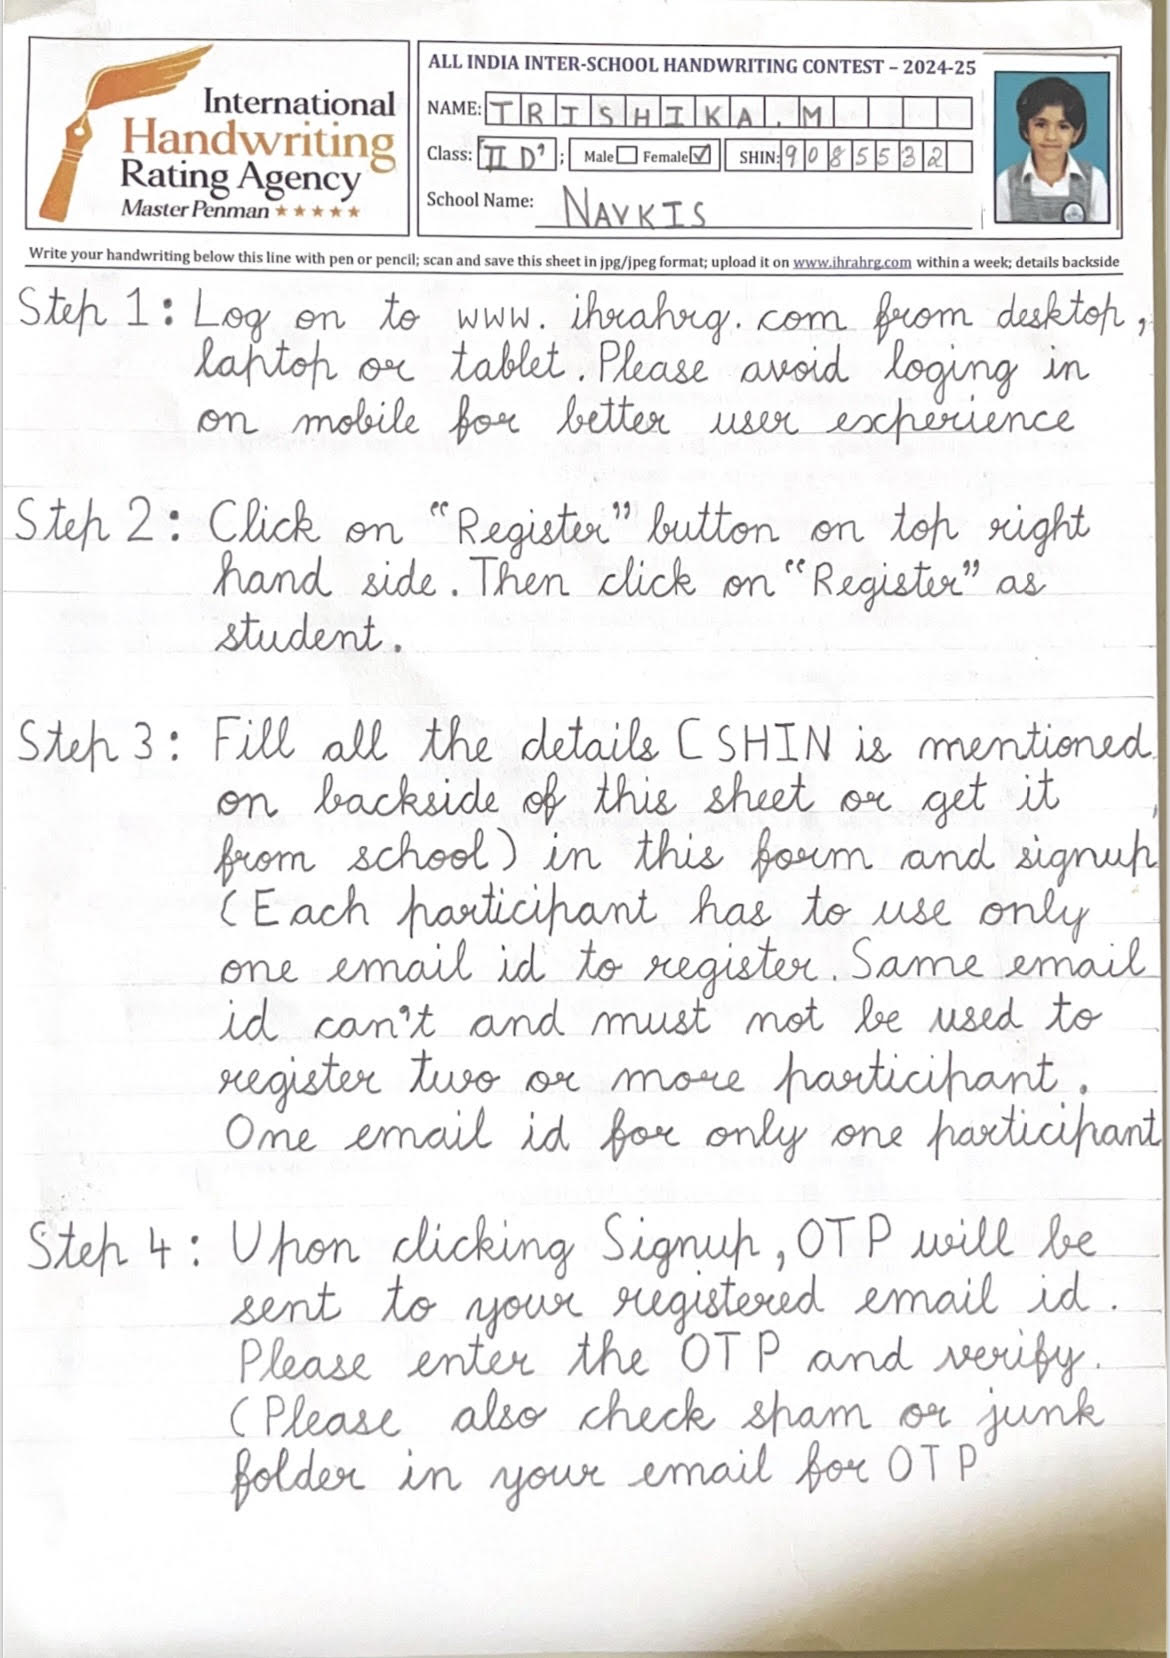 International
Handwriting
Rating Agency
Master Penman ★★★★★
ALL INDIA INTER-SCHOOL HANDWRITING CONTEST – 2024-25
NAME: TRISHIKA.M
Class: "II D' ; Male ☐ Female ☑ SHIN: 90855332
School Name: NAVKIS
Write your handwriting below this line with pen or pencil; scan and save this sheet in jpg/jpeg format; upload it on www.ihrahrg.com within a week; details backside
Step 1: Log on to www.ihrahrg.com from desktop,
laptop or tablet. Please avoid loging in
on mobile for better user experience
Step 2: Click on "Register" button on top right
hand side. Then click on "Register" as
student.
Step 3: Fill all the details (SHIN is mentioned
on backside of this sheet or get it
from school) in this form and signup
(Each participant has to use only
one email id to register. Same email
id can't and must not be used to
register two or more participant.
One email id for only one participant
Step 4: Upon clicking Signup, OTP will be
sent to your registered email id.
Please enter the OTP and verify.
(Please also check spam or junk
folder in your email for OTP